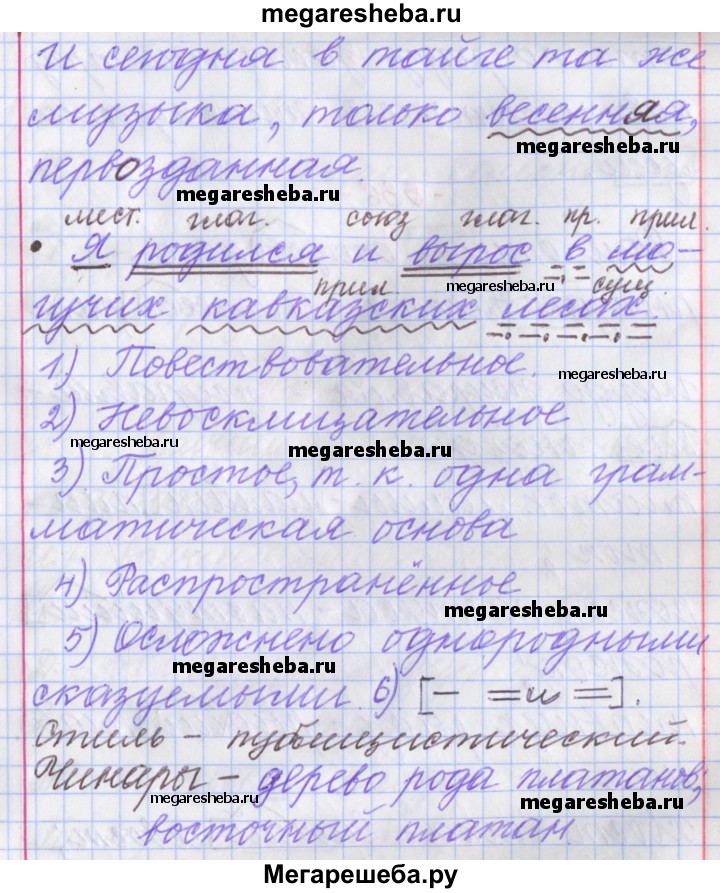 megaresheba.ru
И сегодня в тайге та же
музыка, только весенняя,
megaresheba.ru
первозданная.
megaresheba.ru
мест. глаг. союз глаг. пр. прил.
• Я родился и вырос в мо-
прил. megaresheba.ru сущ.
гучих кавказских лесах.
1) Повествовательное.
megaresheba.ru
2) Невосклицательное
megaresheba.ru megaresheba.ru
3) Простое, т. к. одна грам-
матическая основа
4) Распространённое
megaresheba.ru
5) Осложнено однородными
megaresheba.ru
сказуемыми. 6) [– = и =].
Стиль – публицистический.
Чинары – дерево рода платанов;
megaresheba.ru megaresheba.ru
восточный платан
Мегарешеба.ру